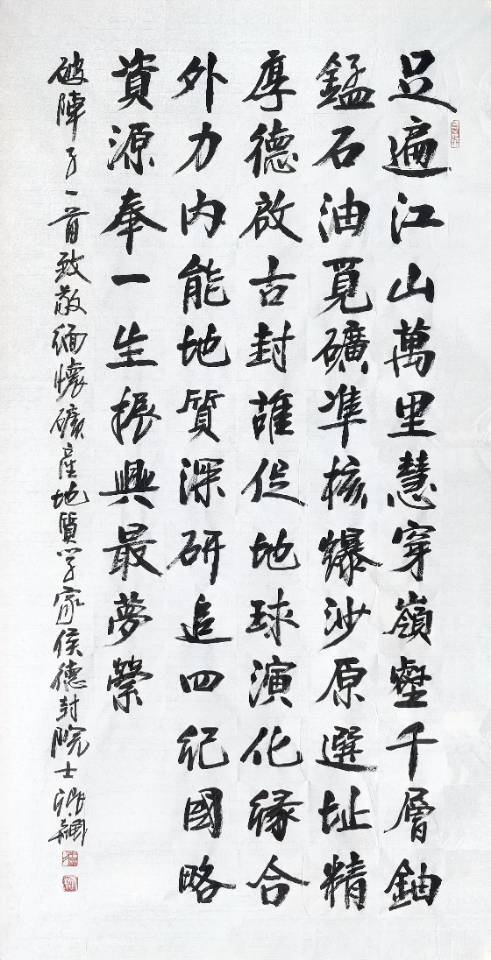 足遍江山萬里慧穿嶺壑千層鈾
錳石油覓礦準核爆沙原選址精
厚德啟古封誰促地球演化緣合
外力内能地質深研追四紀國略
資源奉一生振興最夢縈
破陣子一首致敬緬懷礦產地質学家侯德封院士